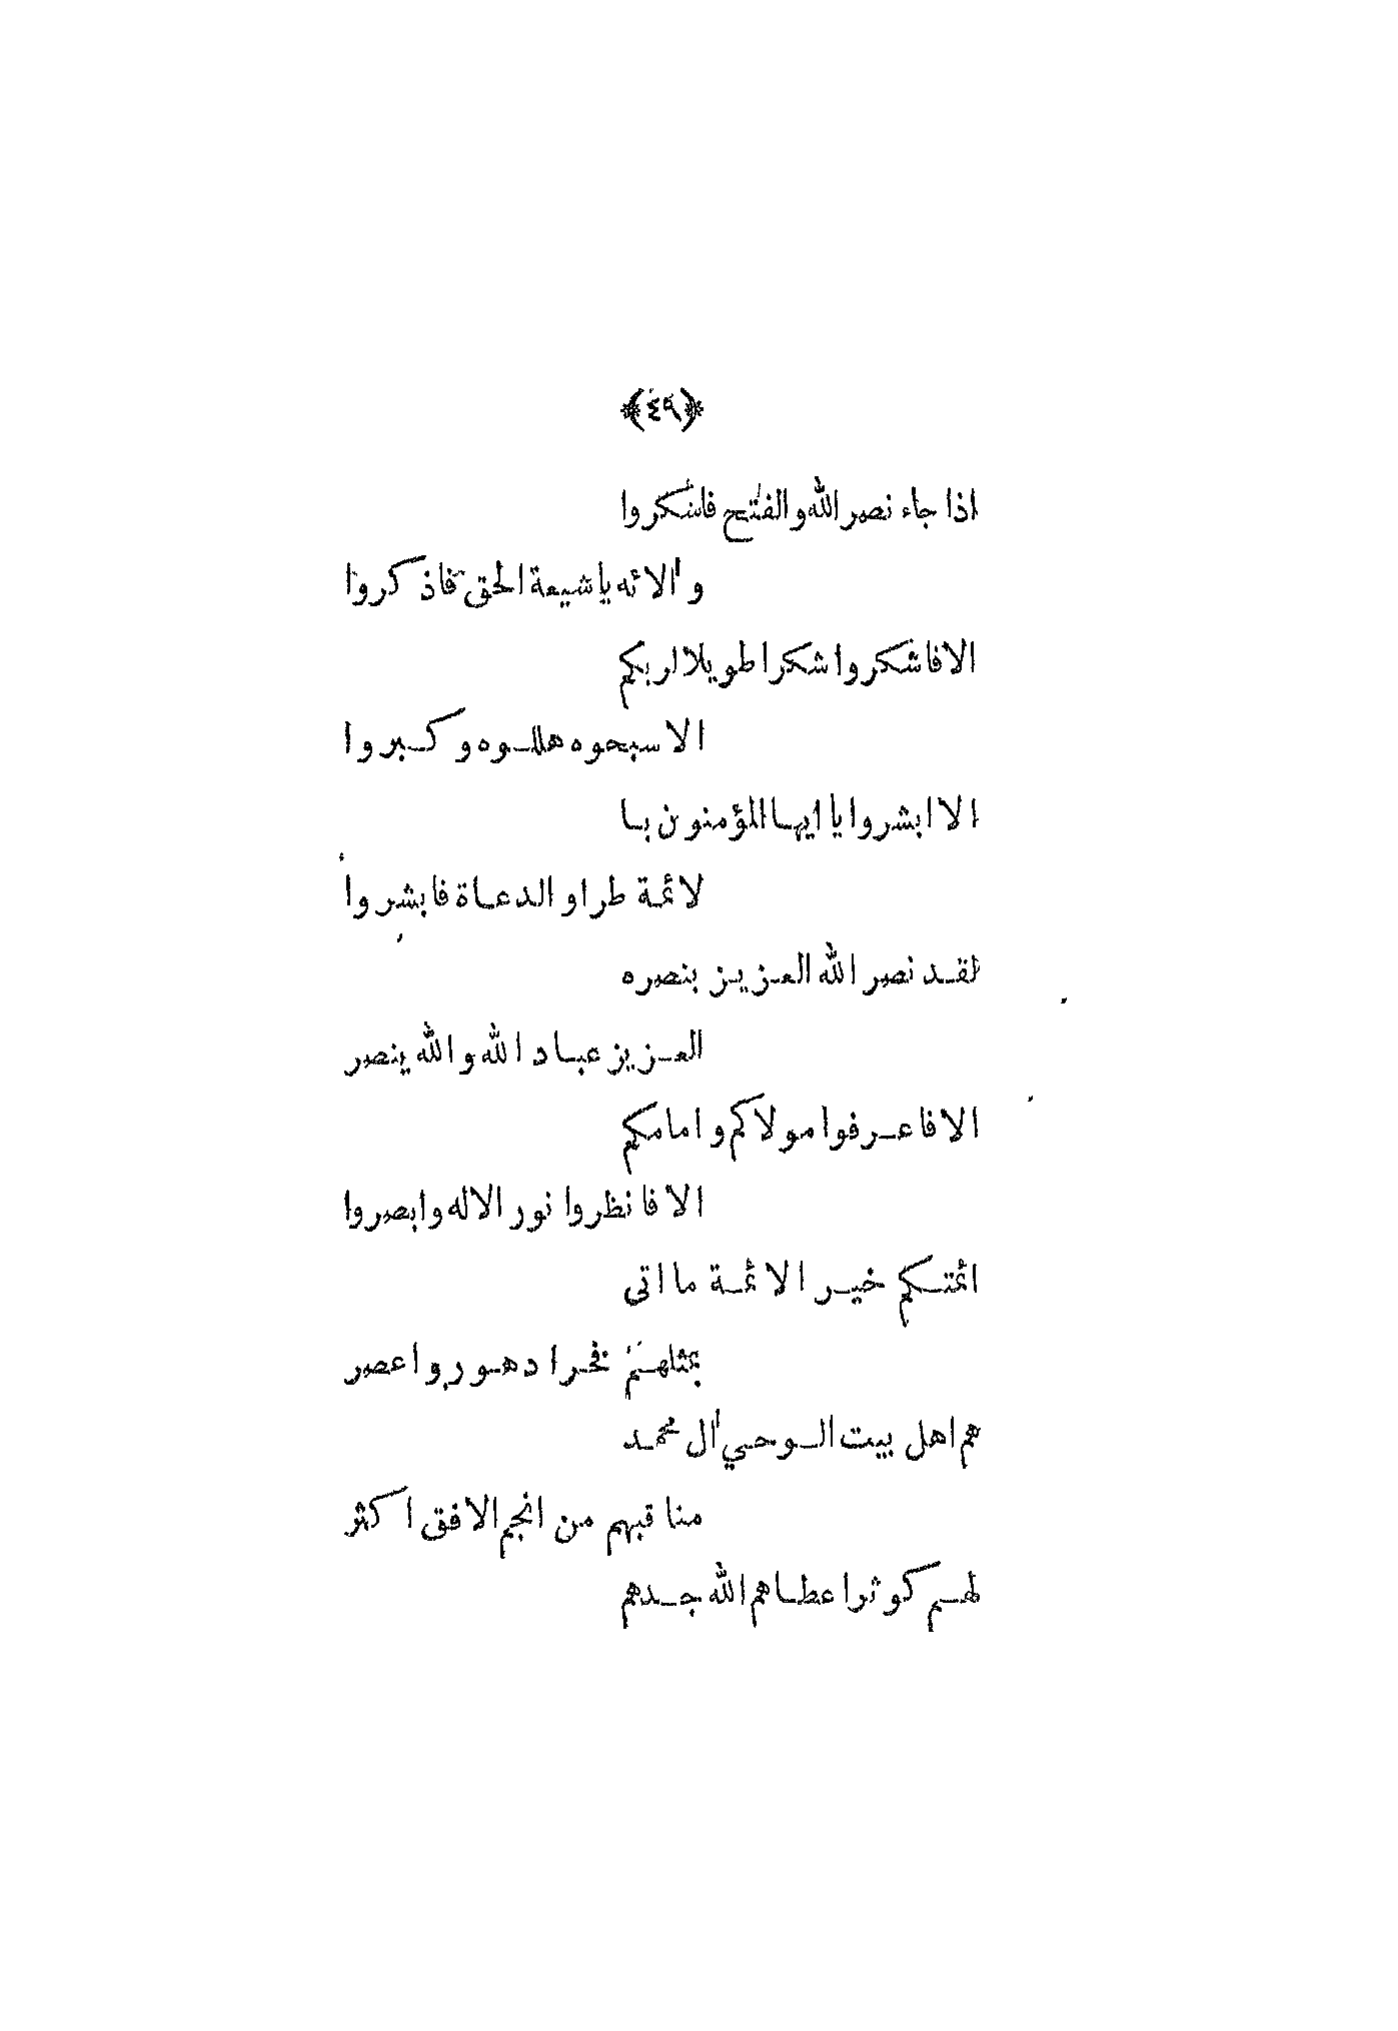 ﴿٤٩﴾
اذا جاء نصر الله والفتح فاشكروا
وآلائه ياشيعة الحق فاذكروا
الا فاشكروا شكرا طويلا لربكم
الا سبحوه هللوه وكبروا
الا ابشروا يا ايها المؤمنون با
لائمة طرا والدعاة فابشروا
لقد نصر الله العزيز بنصره
العزيز عباد الله والله ينصر
الا فاعرفوا مولاكم وامامكم
الا فانظروا نور الاله وابصروا
ائمتكم خير الائمة ما اتى
بمثلهم فخرا دهور واعصر
هم اهل بيت الوحي آل محمد
مناقبهم من انجم الافق اكثر
لهم كوثرا عطاهم الله جدهم